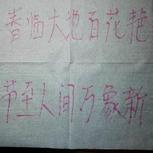 春临大地百花艳
节至人间万象新